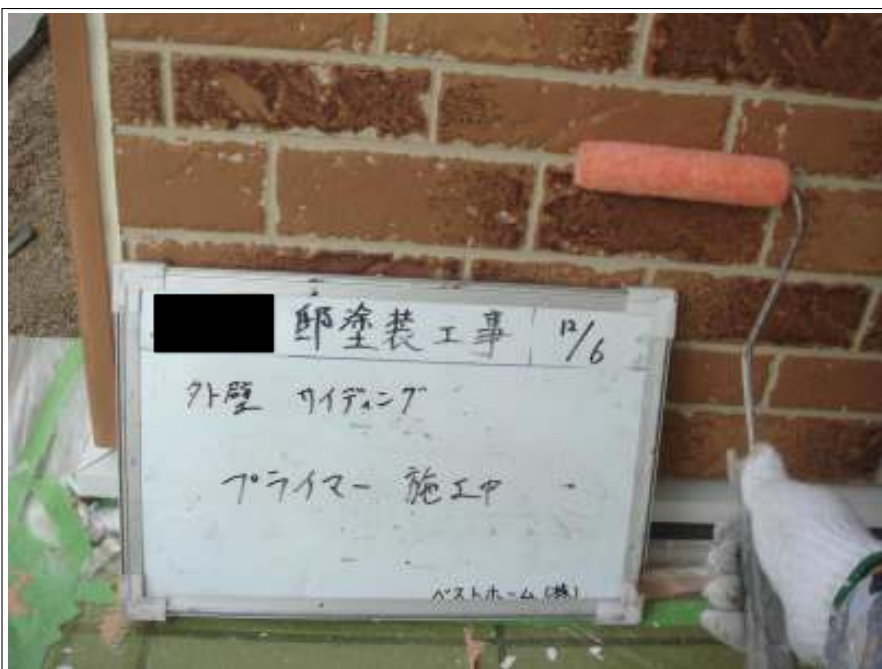 邸塗装工事 12/6
外壁 サイディング
プライマー 施工中
ベストホーム(株)